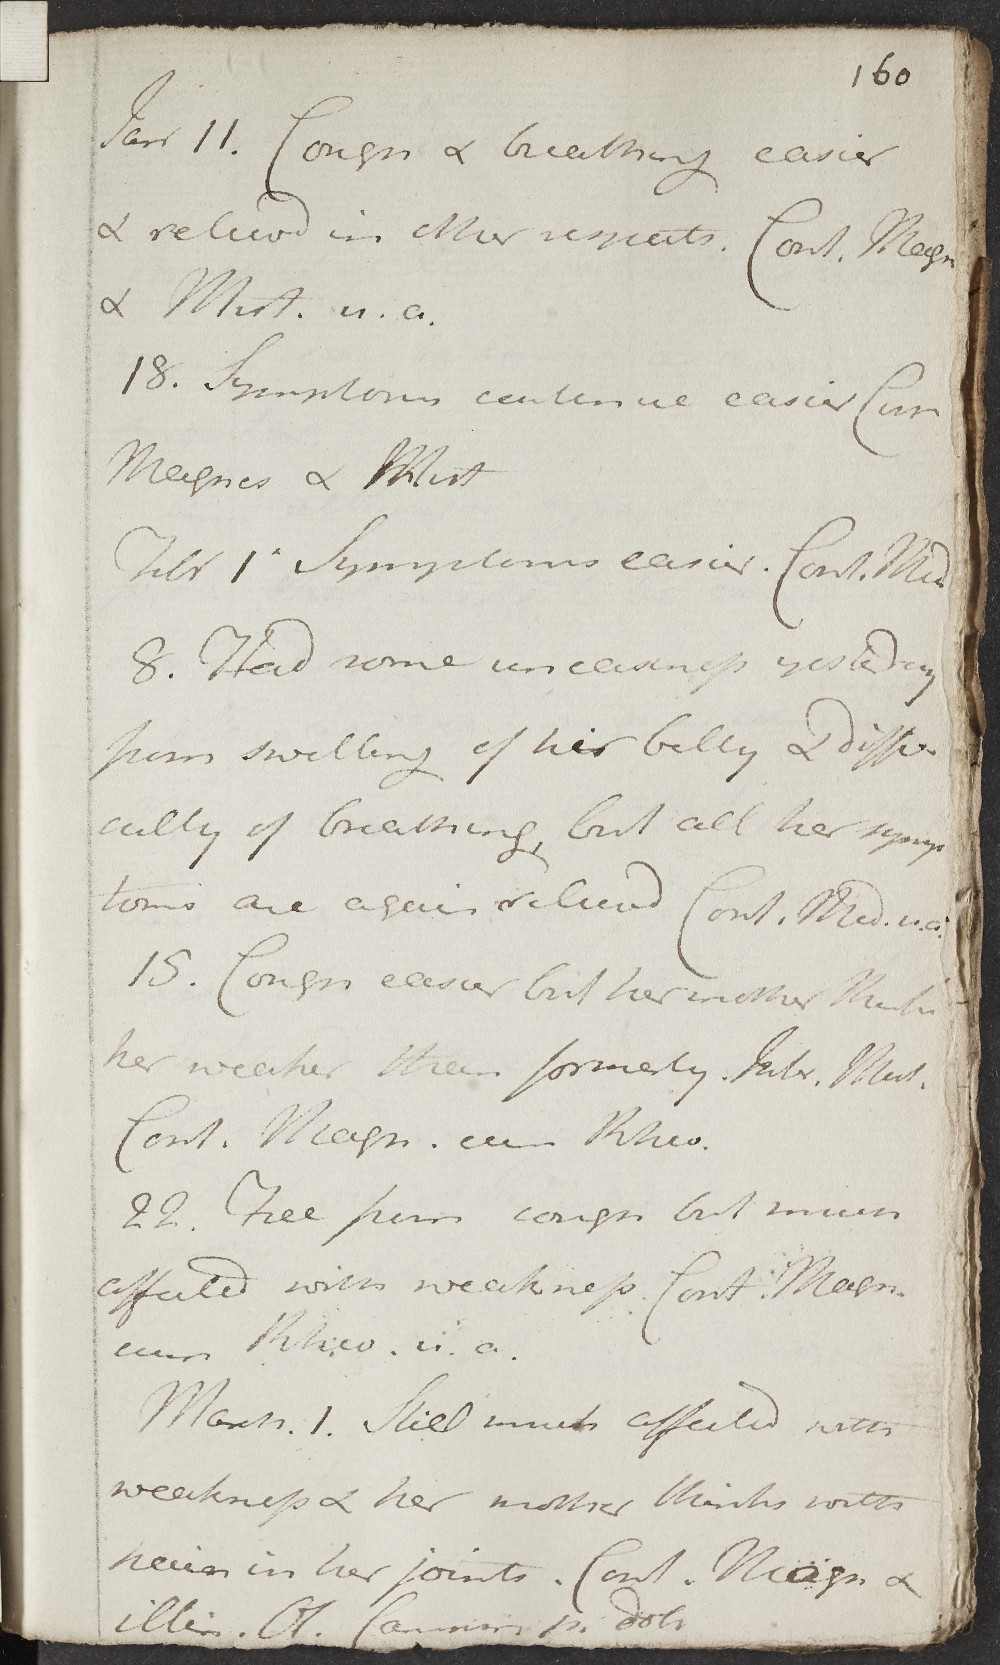 160
Jan 11. Cough & breathing easier
& reliev'd in other respects. Cont. Magn
& Mist. u.a.
18. Symptoms continue easier Cont
Magnes & Mist
Febr 1. Symptoms easier. Cont. Med
8. Had some uneasiness yesterday
from swelling of her belly & diffi-
culty of breathing, but all her symp
toms are again relieved Cont. Med. u.a.
15. Cough easier but her mother thinks
her weaker than formerly. Intr. Mist.
Cont. Magn. cum Rheo.
22. Free from cough but much
affected with weakness. Cont. Magn.
cum Rheo. u. a.
March. 1. Still much affected with
weakness & her mother thinks with
pain in her joints. Cont. Magn &
illin. Ol. p. dol